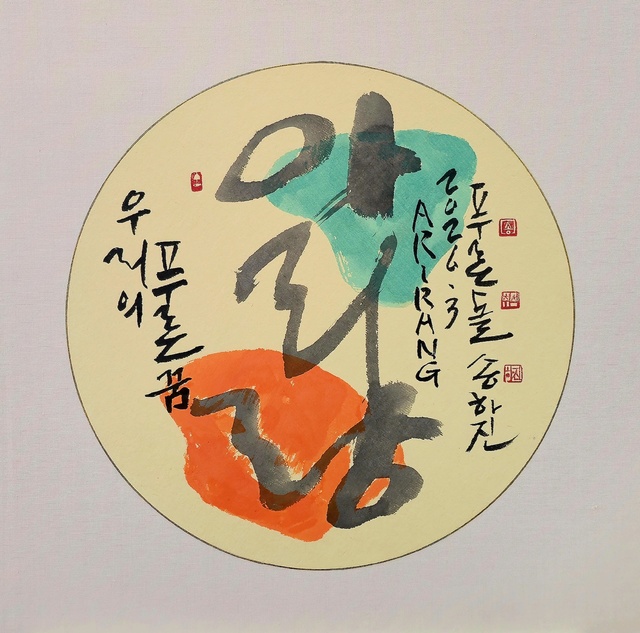 아리랑
우리의
푸른 꿈
ARIRANG
2026.3
푸른돌 송하진